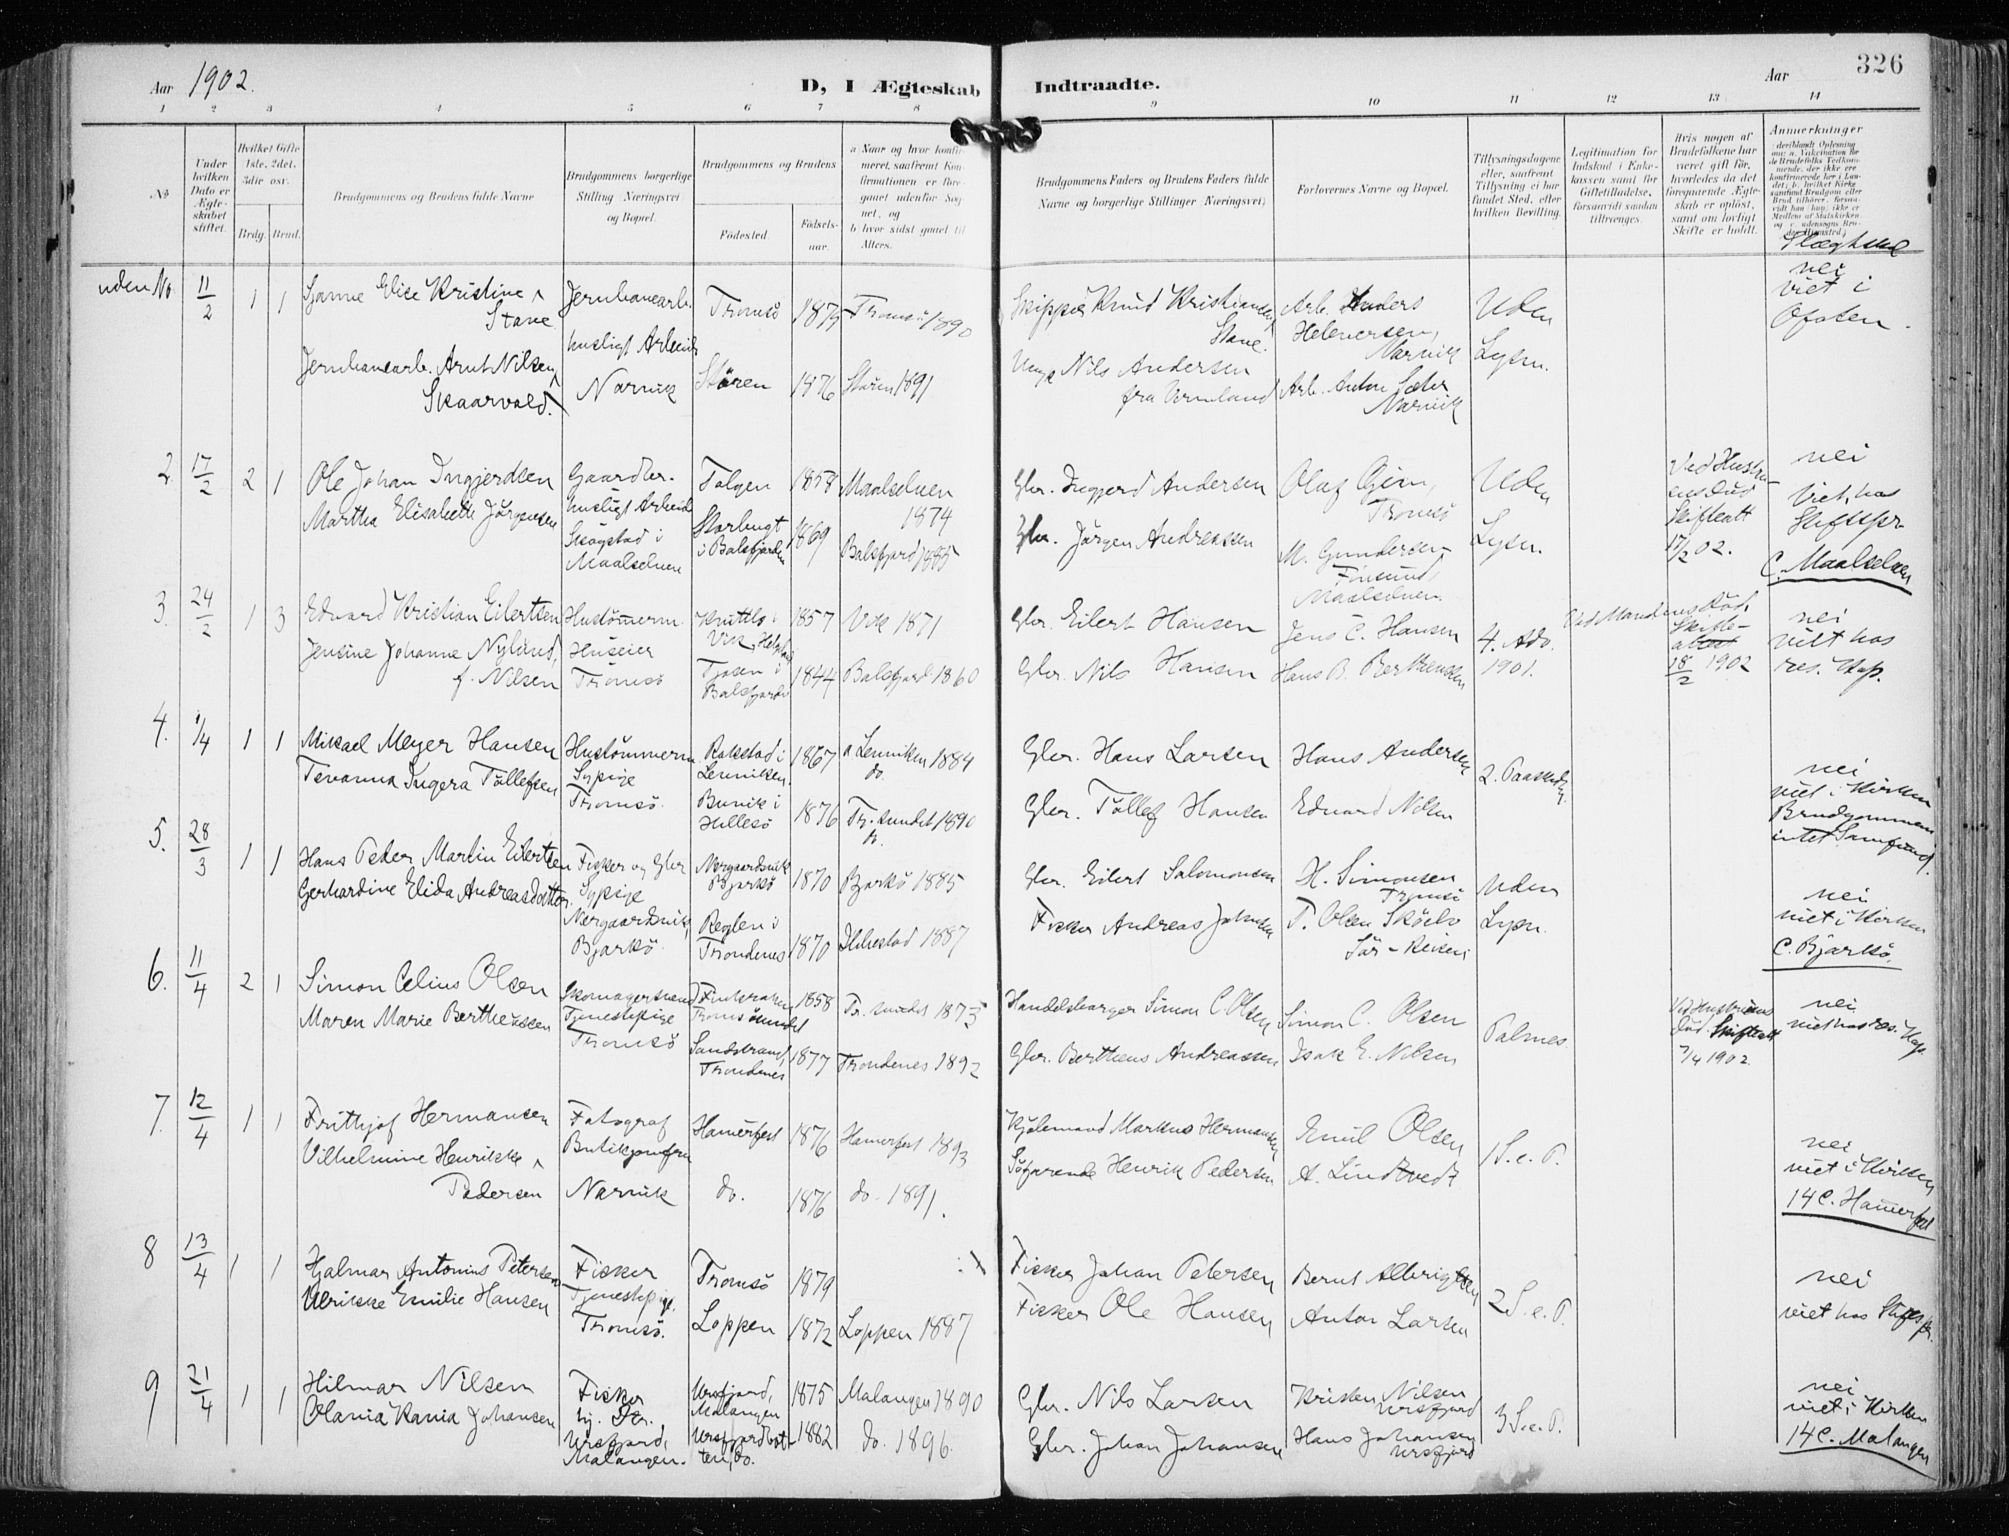 Aar 1902.
D, I Ægteskab Indtraadte.
Aar
326
1 2 3 4 5 6 7 8 9 10 11 12 13 14
No
Under hvilken Dato er Ægteskabet stiftet.
Hvilket Gifte 1ste, 2det, 3die osv.
Brdg. Brud.
Brudgommens og Brudens fulde Navne
Brudgommens borgerlige Stilling Næringsvei og Bopæl.
Brudgommens og Brudens
Fødested.
Fødselsaar.
a Naar og hvor konfirmeret, saafremt Konfirmationen er foregaaet udenfor Sognet, og
b hvor sidst gaaet til Alters.
Brudgommens Faders og Brudens Faders fulde Navne og borgerlige Stillinger Næringsvei;
Forlovernes Navne og Bopæl.
Tillysningsdagene eller, saafremt Tillysning ei har fundet Sted, efter hvilken Bevilling.
Legitimation for Indskud i Enkekassen samt for Giftetilladelse, forsaavidt saadan tiltrænges.
Hvis nogen af Brudefolkene har været gift før, hvorledes da det foregaaende Ægteskab er opløst, samt om lovligt Skifte er holdt.
Anmerkninger
Slægtskab
uden No 11/2 1 1
Sjanne Elise Kristine Stave
Jernbanearb. Arnt Nilsen Skaarvold.
Jernbanearb.
husligt Arbeide
Narvik
Tromsø 1879 Tromsø 1890
Støren 1876 Støren 1891
Skipper Knud Kristiansen Stave.
Nils Andersen fra Vermland
Arb. Anders Helmersen, Narvik
Arb. Anton Sæter Narvik
Uden Lysn.
nei
viet i
Ofoten.
2 17/2 2 1
Ole Johan Ingjerdsen
Martha Elisabeth Jørgensen
Gaardbr.
husligt Arbeide
Skogstad i
Maalselven
Tolgen 1858 Maalselven 1874
Storbugt i Balsfjorden 1869 Balsfjord 1885
Gbr. Ingjerd Andersen
Gbr. Jørgen Andreassen
Olaf Gjem, Tromsø
M. Gundersen Finsund, Maalselven
Uden Lysn.
Ved Hustruens Død
Skifteatt
17/2 02.
nei
Viet hos
Stiftspr
C. Maalselven
3. 24/2 1 3
Edvard Kristian Eilertsen
Jensine Johanne Nylund, f. Nilsen
Hustømerm.
Huseier
Tromsø
Vik, Helgeland 1857 Vik 1871
Tjosen i Balsfjorden 1844 Balsfjord 1860
Gbr. Eilert Hansen
Gbr. Nils Hansen
Jens C. Hansen
Hans B. Berthensen
4. Adv. 1901.
Ved Mandens Død,
Skifteattest
18/2 1902
nei
viet hos
res. Kap.
4. 1/4 1 1
Mikael Meyer Hansen
Tevanna Ingera Tollefsen
Hustømmerm
Sypige
Tromsø.
Rakstad i Lenviken. 1867 a Lenviken 1884 do.
Bunik i Hillesø 1876 Tr.sundet 1890
Gbr. Hans Larsen
Gbr. Tollef Hansen
Hans Andersen
Edvard Nilsen
2. Paaskedag
nei
viet i Kirken
Brudgommen
intet Samfund.
5. 28/3 1 1
Hans Peder Martin Eilertsen
Gerhardine Elida Andreasdotter
Fisker og Gbr
Sypige
Nergaardsvik,
Bjarkø.
Nergaardsvik Bjarkø 1870 Bjarkø 1885
Trondenes 1870 Ibbestad 1887
Gbr. Eilert Salomonsen
Fisker Andreas Johnsen
H. Simonsen Tromsø
P. Olsen Skøelv
Sør-Reisen
Uden Lysn.
nei
viet i Kirken
C. Bjarkø.
6. 11/4 2 1
Simon Celius Olsen
Maren Marie Bertheussen
Skomagersvend
Tjenestepige
Tromsø
Finkroken Tromsøsundet 1858 Tr.sundet 1873
Sandstrand, Trondenes 1877 Trondenes 1892
Handelsborger Simon C Olsen
Gbr. Bertheus Andreassen
Simon C. Olsen
Isak E. Nilsen
Palmes.
Ved Hustruens
Død. Skifteatt
7/4 1902
nei
viet hos res. Kap.
7. 12/4 1 1
Frithjof Hermansen
Vilhelmine Henrikke Pedersen
Fotograf
Butikjomfru
Narvik
Hamerfest 1876 Hamerfest 1893
do. 1876 do. 1891.
Kjølemand Markus Hermansen
Søfarende Henrik Pedersen
Emil Olsen
A. Lindtvedt
1 S. e. P.
nei
viet i Kirken
14 C. Hamerfest
8 13/4 1 1
Hjalmar Antonius Petersen
Ulrikke Emilie Hansen
Fisker
Tjenestepige.
Tromsø.
Tromsø 1879
Loppen 1872 Loppen 1887
Fisker Johan Petersen
Fisker Ole Hansen
Bernt Albrigtsen
Anton Larsen
2 S. e. P.
nei
viet hos Stiftspr.
9 21/4 1 1
Hilmar Nilsen
Olania Kania Johansen
Fisker
Hj. Dr.
Ursfjord,
Malangen.
Ursfjord, Malangen 1875 Malangen 1890
Ursfjordbotten, do. 1882 do. 1896.
Gbr. Nils Larsen
Gbr. Johan Johansen
Kristen Nilsen Ursfjord
Hans Johansen Ursfjord
3 S. e. P.
nei
viet i Kirken
14 C. Malangen